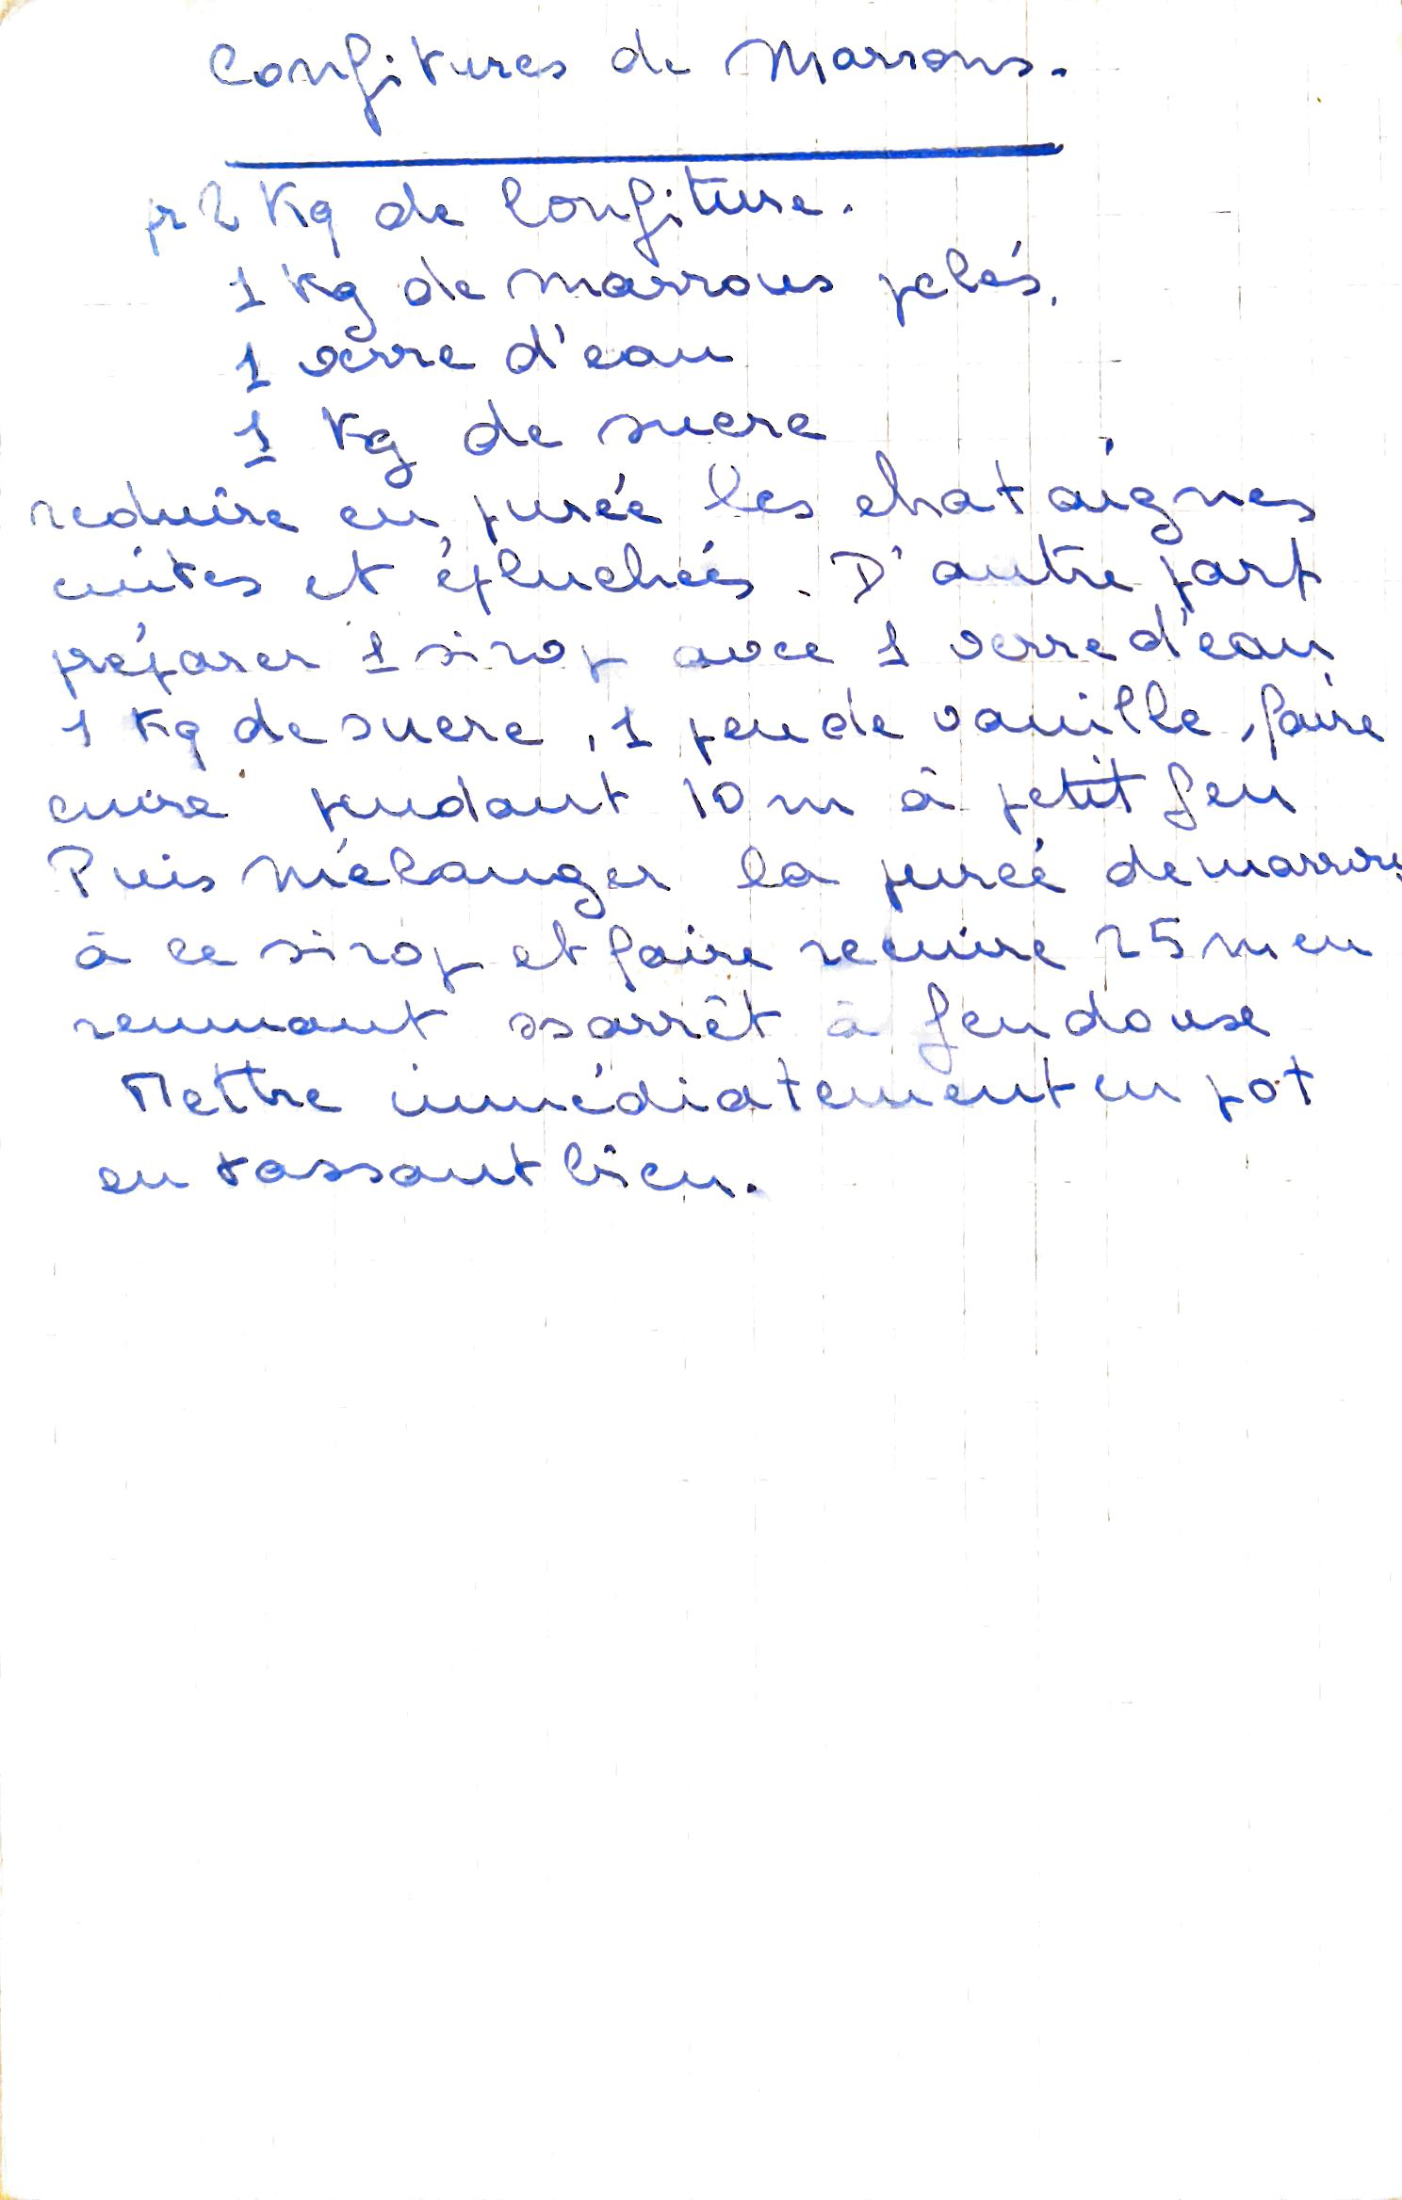 Confitures de Marrons.
pr 2 Kg de Confiture.
1 Kg de marrons pelés.
1 verre d'eau
1 Kg de sucre
reduire en purée les chataignes
cuites et épluchées. D'autre part
préparer 1 sirop avec 1 verre d'eau
1 Kg de sucre, 1 peu de vanille, faire
cuire pendant 10 m à petit feu
Puis Mélanger la purée de marrons
à ce sirop et faire recuire 25 m en
remuant ss arrêt à feu doux
Mettre immédiatement en pot
en tassant bien.